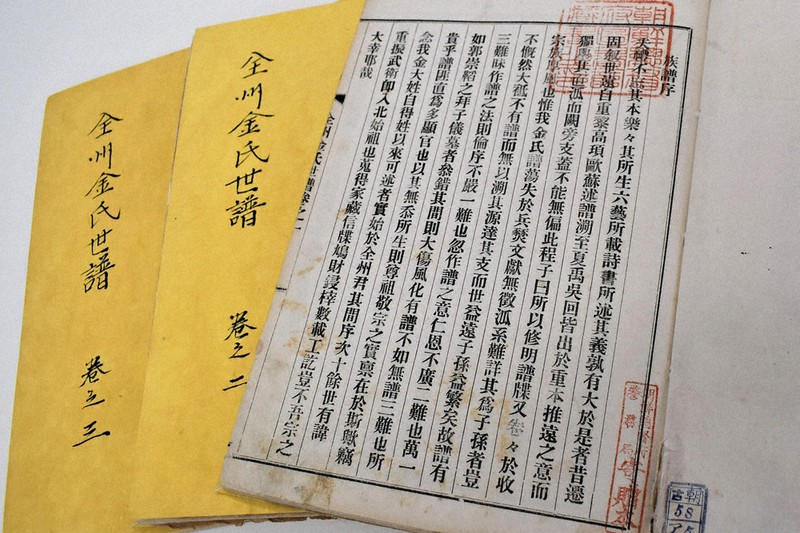 族譜序
夫禮不忘其本樂々其所生六藝所載詩書所述其義孰有大於是者昔遷
固敍世遠自重黎高項歐蘇述譜溯至夏禹吳回皆出於重本推遠之意而
獨其世孤而闕旁支蓋不能無偏此程子曰所以修明譜牒又眷々於收
宗族厚風也惟我金氏譜蕩失於兵燹文獻無徵派系難詳其爲子孫者豈
不慨然大抵不有譜而無以溯其源達其支而世益遠子孫益繁矣故譜有
三難昧作譜之法則倫序不嚴一難也忽作譜之意仁恩不廣二難也萬一
如郭崇韜之拜子儀墓者叅錯其間則大傷風化有譜不如無譜三難也所
貴乎譜匪直爲多顯官也以其無忝所生則尊祖敬宗之實亶在於斯歟竊
念我金大姓自得姓以來可述者實始於全州君其間序次十餘世有諱
重振武衛即入北始祖也蒐得家藏信牒鳩財鋟梓數載工訖豈不吾宗之
大幸耶哉
全州金氏世譜卷之一
全州金氏世譜 卷之二
全州金氏世譜 卷之三
朝
古
58